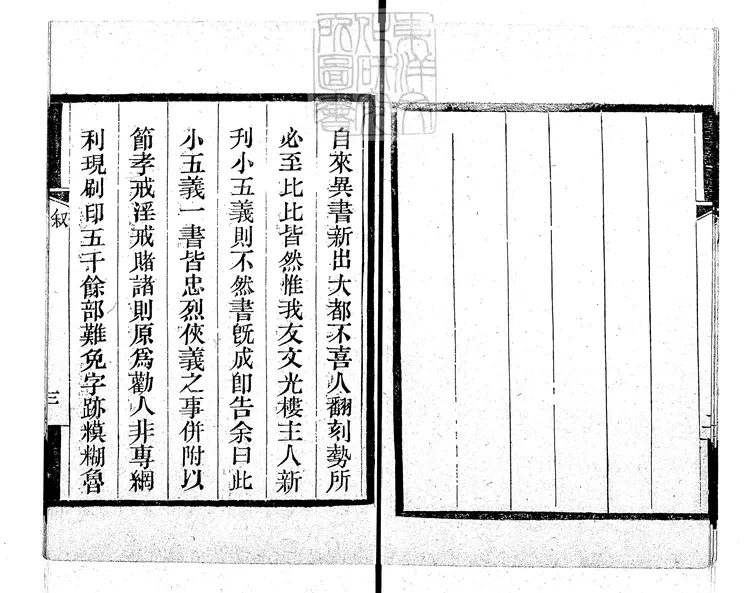 東洋文
化研究
所圖書
二
自來異書新出大都不喜人翻刻勢所
必至比比皆然惟我友文光樓主人新
刋小五義則不然書旣成卽告余曰此
小五義一書皆忠烈俠義之事併附以
節孝戒淫戒賭諸則原爲勸人非專網
利現刷印五千餘部難免字跡糢糊魯
叙
三